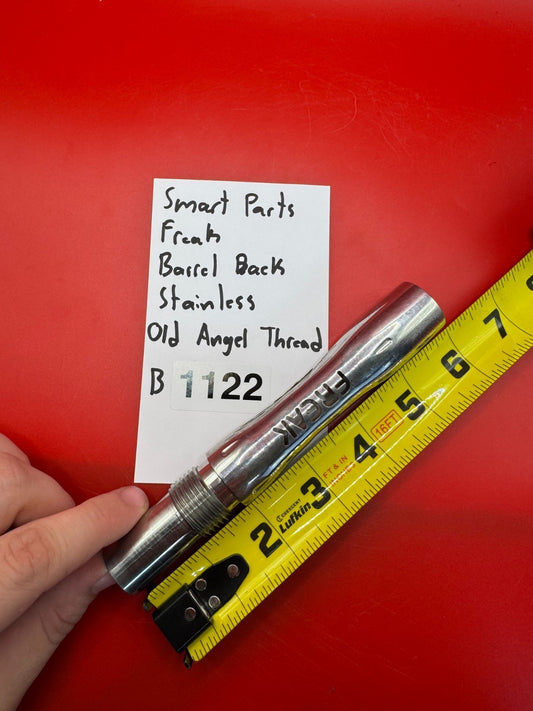 Smart Parts
Freak
Barrel Back
Stainless
Old Angel Thread
B 1122
FREAK
2 3 4 5 6 7
FT & IN
16FT
CRESCENT
Lufkin